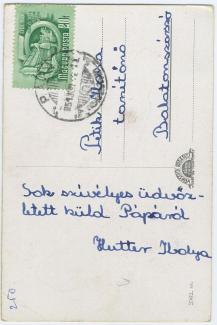 Magyar Posta 20f
Petik Ilona
tanítónő
Balatonszársó
Sok szívélyes üdvöz-
letett küld Pápáról
Hutter Ibolya
250